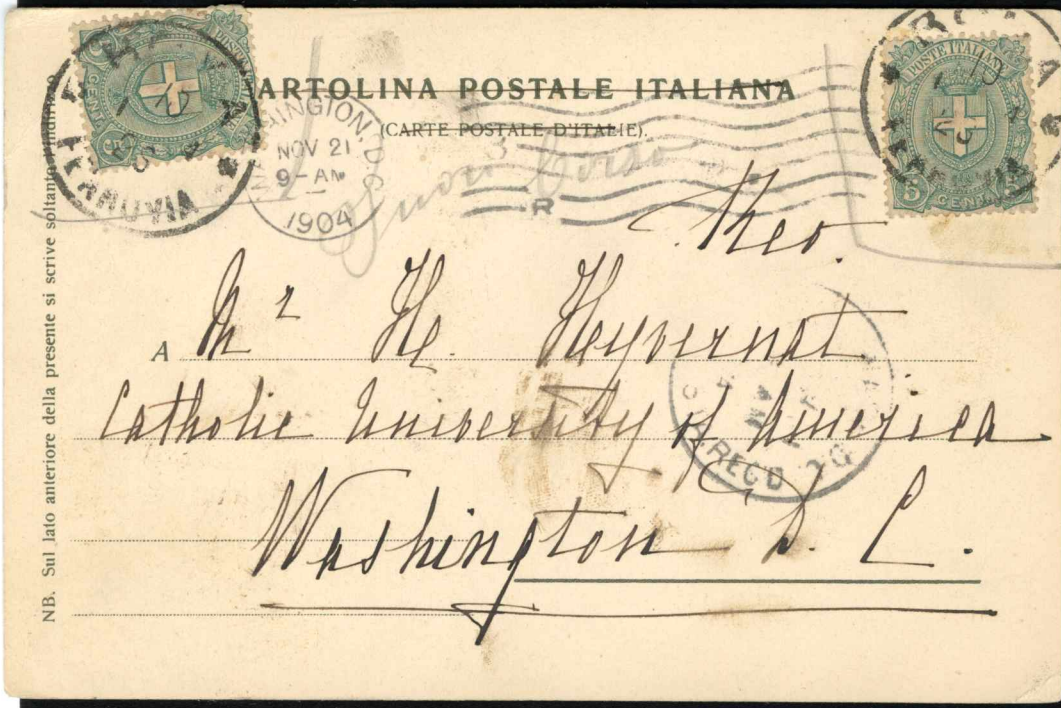 CARTOLINA POSTALE ITALIANA
(CARTE POSTALE D'ITALIE).
NOV 21
9-AM
1904
3
R
POSTE ITALIANE
5 CENT 5
FERROVIA
ROMA
FERROVIA
Mr H. Hyvernat.
A
Catholic University of America
Washington D. C.
REC'D
NB. Sul lato anteriore della presente si scrive soltanto l'indirizzo